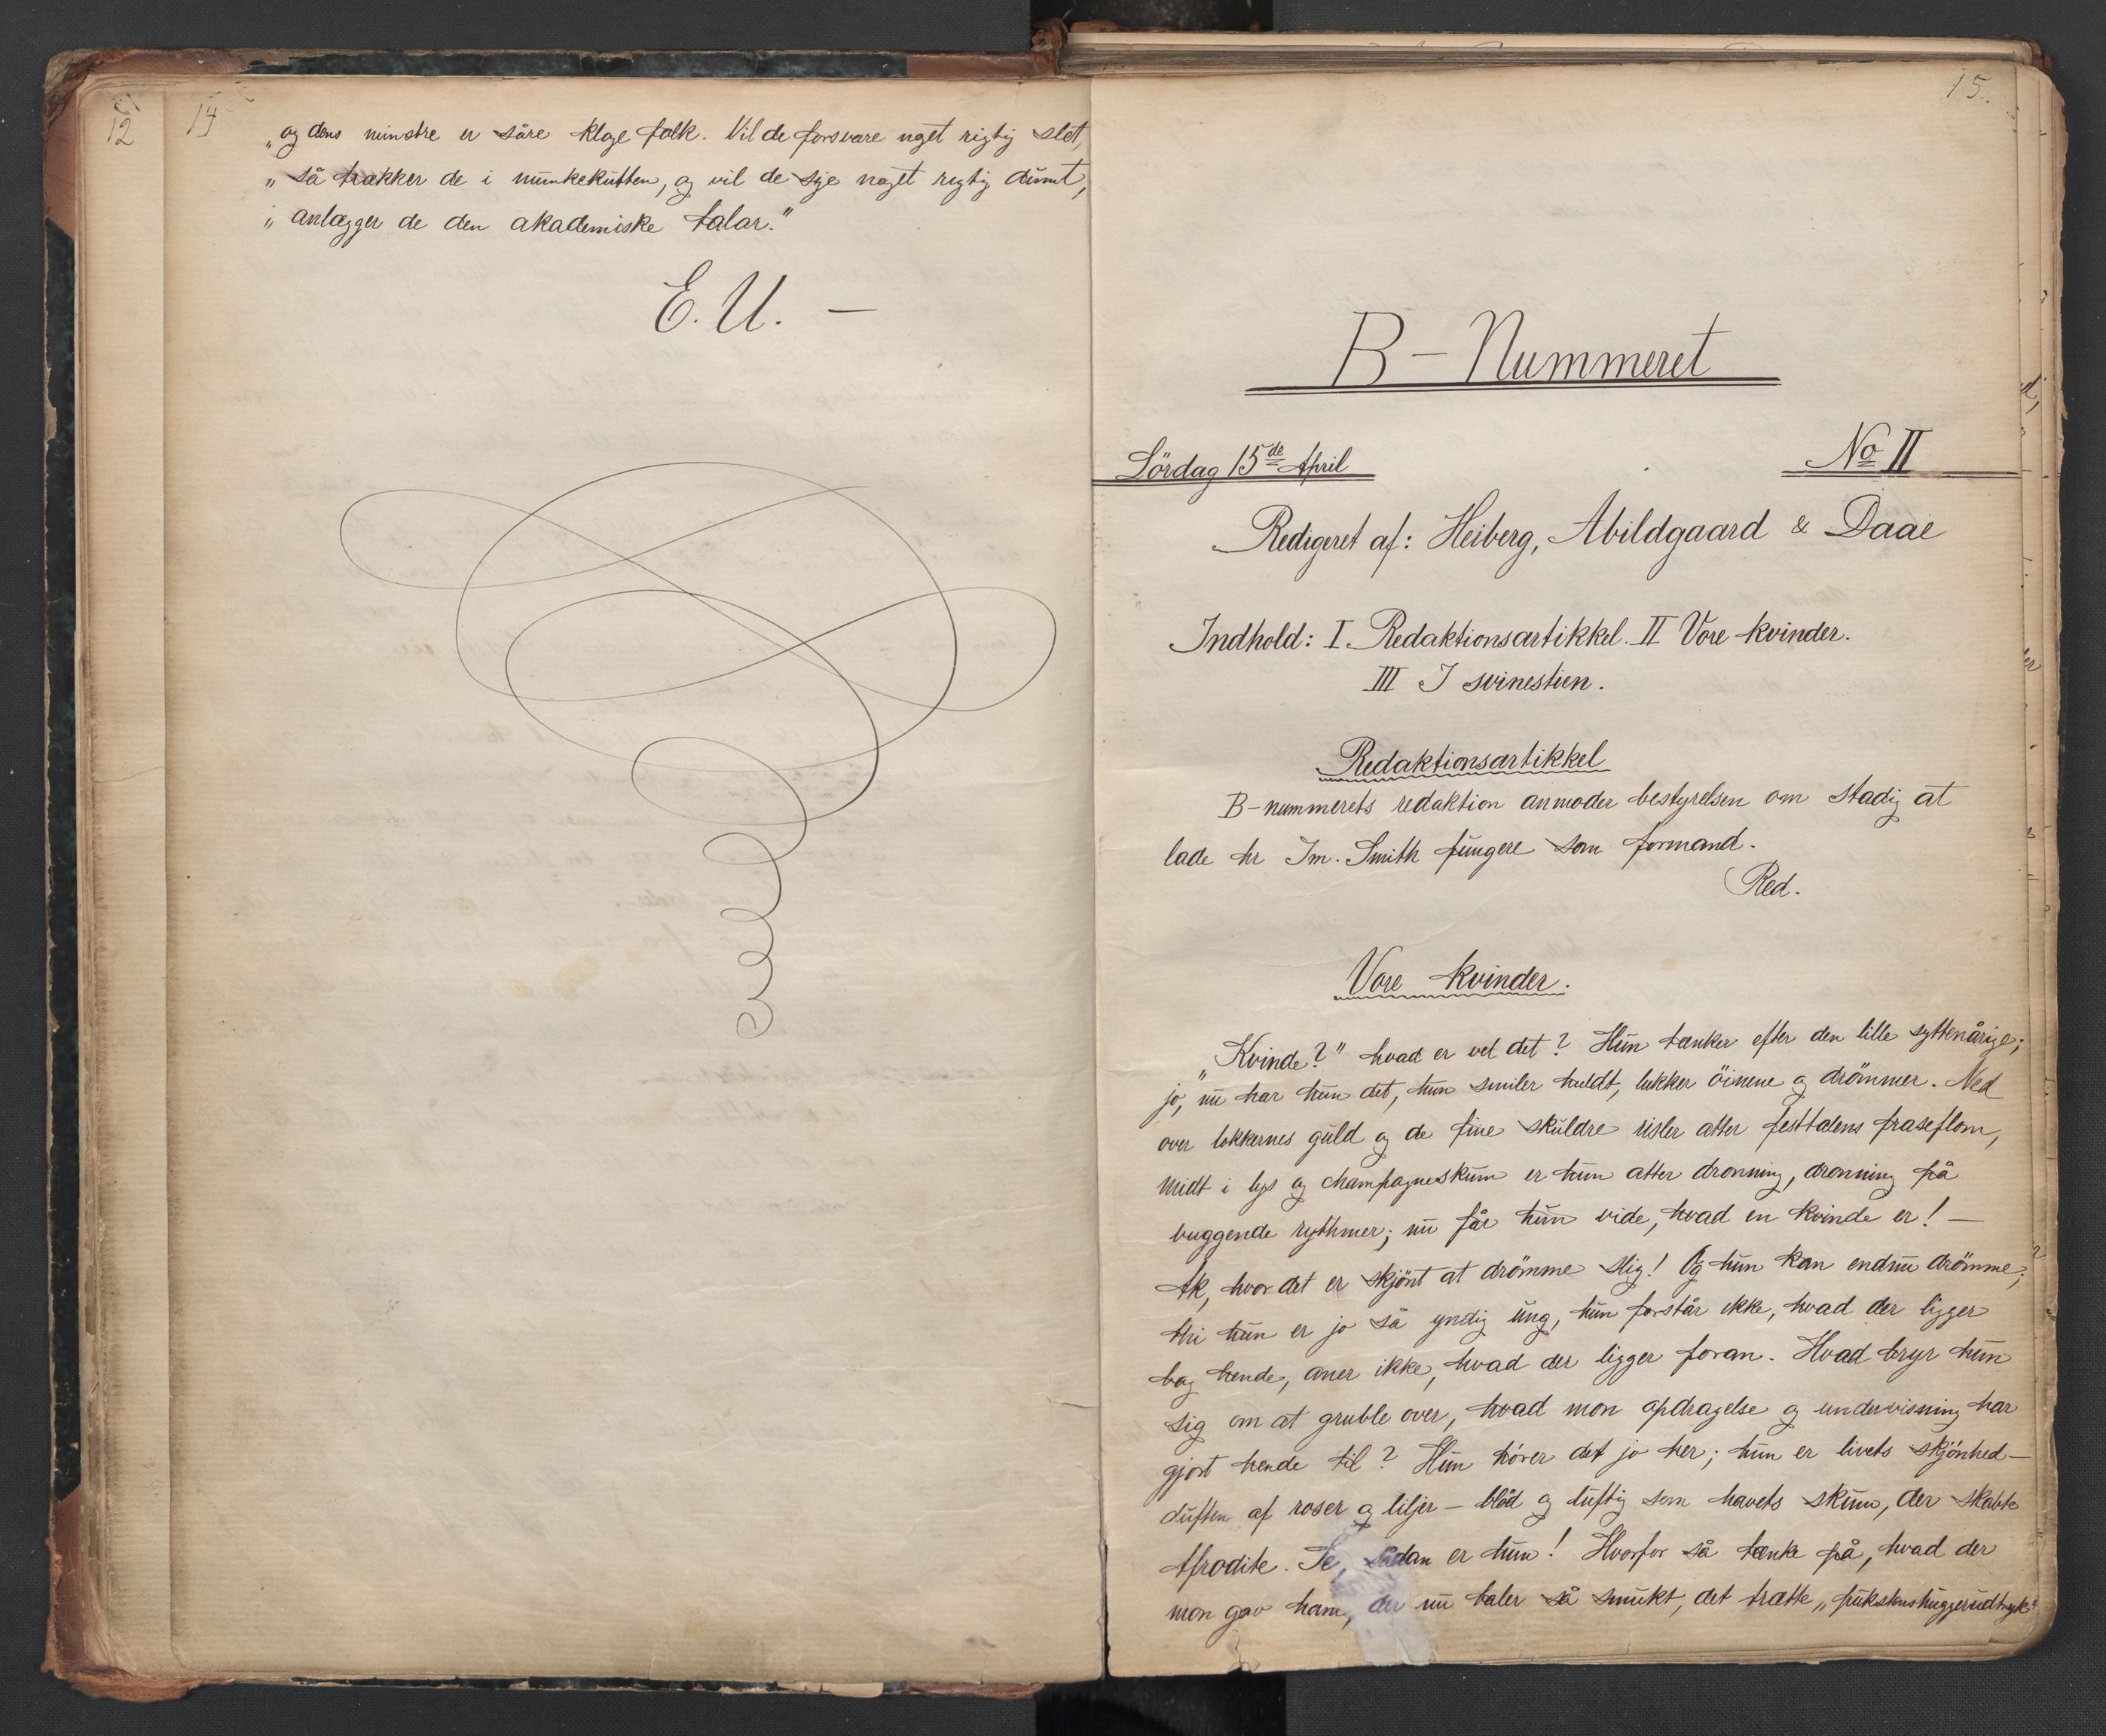 12
14
„og dens minstre er såre kloge folk. Vil de forsvare noget rigtig slet,
„ så trækker de i munkekutten, og vil de sige noget rigtig dumt,
„ anlægger de den akademiske talar."
E. U. —
15.
B - Nummeret
Lördag 15de April
No II
Redigeret af: Heiberg, Abildgaard & Daae
Indhold: I. Redaktionsartikkel. II Vore kvinder.
III I svinestien.
Redaktionsartikkel
B-nummerets redaktion anmoder bestyrelsen om stadig at
lade hr Im. Smith fungere som formand.
Red.
Vore kvinder.
„Kvinde?" hvad er vel det? Hun tænker efter den lille syttenårige;
jo, nu har hun det, hun smiler huldt, lukker öinene og drömmer. Ned
over lokkernes guld og de fine skuldre risler atter festtalens fraseflom,
midt i lys og champagneskum er hun atter dronning, dronning på
vuggende rythmer; nu får hun vide, hvad en kvinde er! —
Ak, hvor det er skjönt at drömme slig! Og hun kan endnu drömme;
thi hun er jo så yndig ung, hun forstår ikke, hvad der ligger
bag hende, aner ikke, hvad der ligger foran. Hvad bryr hun
sig om at gruble over, hvad mon opdragelse og undervisning har
gjort hende til? Hun hörer det jo her; hun er livets skjönhed –
duften af roser og liljer – blöd og luftig som havets skum, der skabte
Afrodite. Se, sådan er hun! Hvorfor så tænke på, hvad der
mon gav ham, der nu taler så smukt, det trætte „pukstenshuggerudtryk"